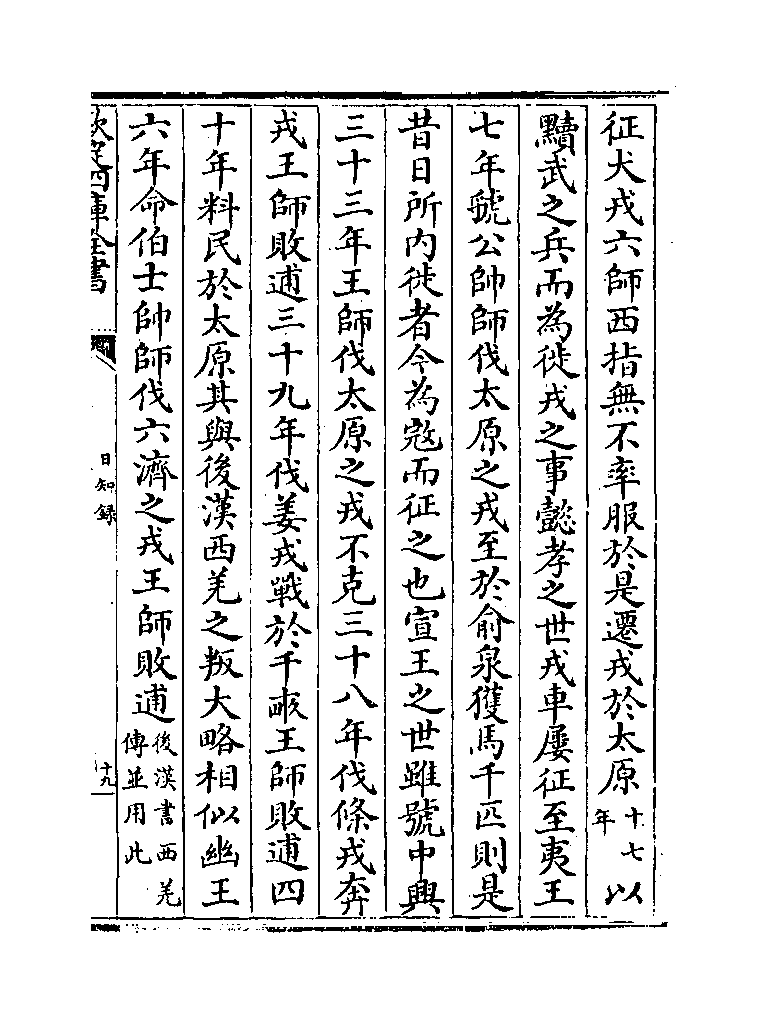 征犬戎六師西指無不率服於是遷戎於太原十七年以
黷武之兵而為徙戎之事懿孝之世戎車屢征至夷王
七年虢公帥師伐太原之戎至於俞泉獲馬千匹則是
昔日所内徙者今為宼而征之也宣王之世雖號中興
三十三年王師伐太原之戎不克三十八年伐條戎奔
戎王師敗逋三十九年伐姜戎戰於千畮王師敗逋四
十年料民於太原其與後漢西羌之叛大略相似幽王
六年命伯士帥師伐六濟之戎王師敗逋後漢書西羌傳並用此
欽定四庫全書
日知録
十九